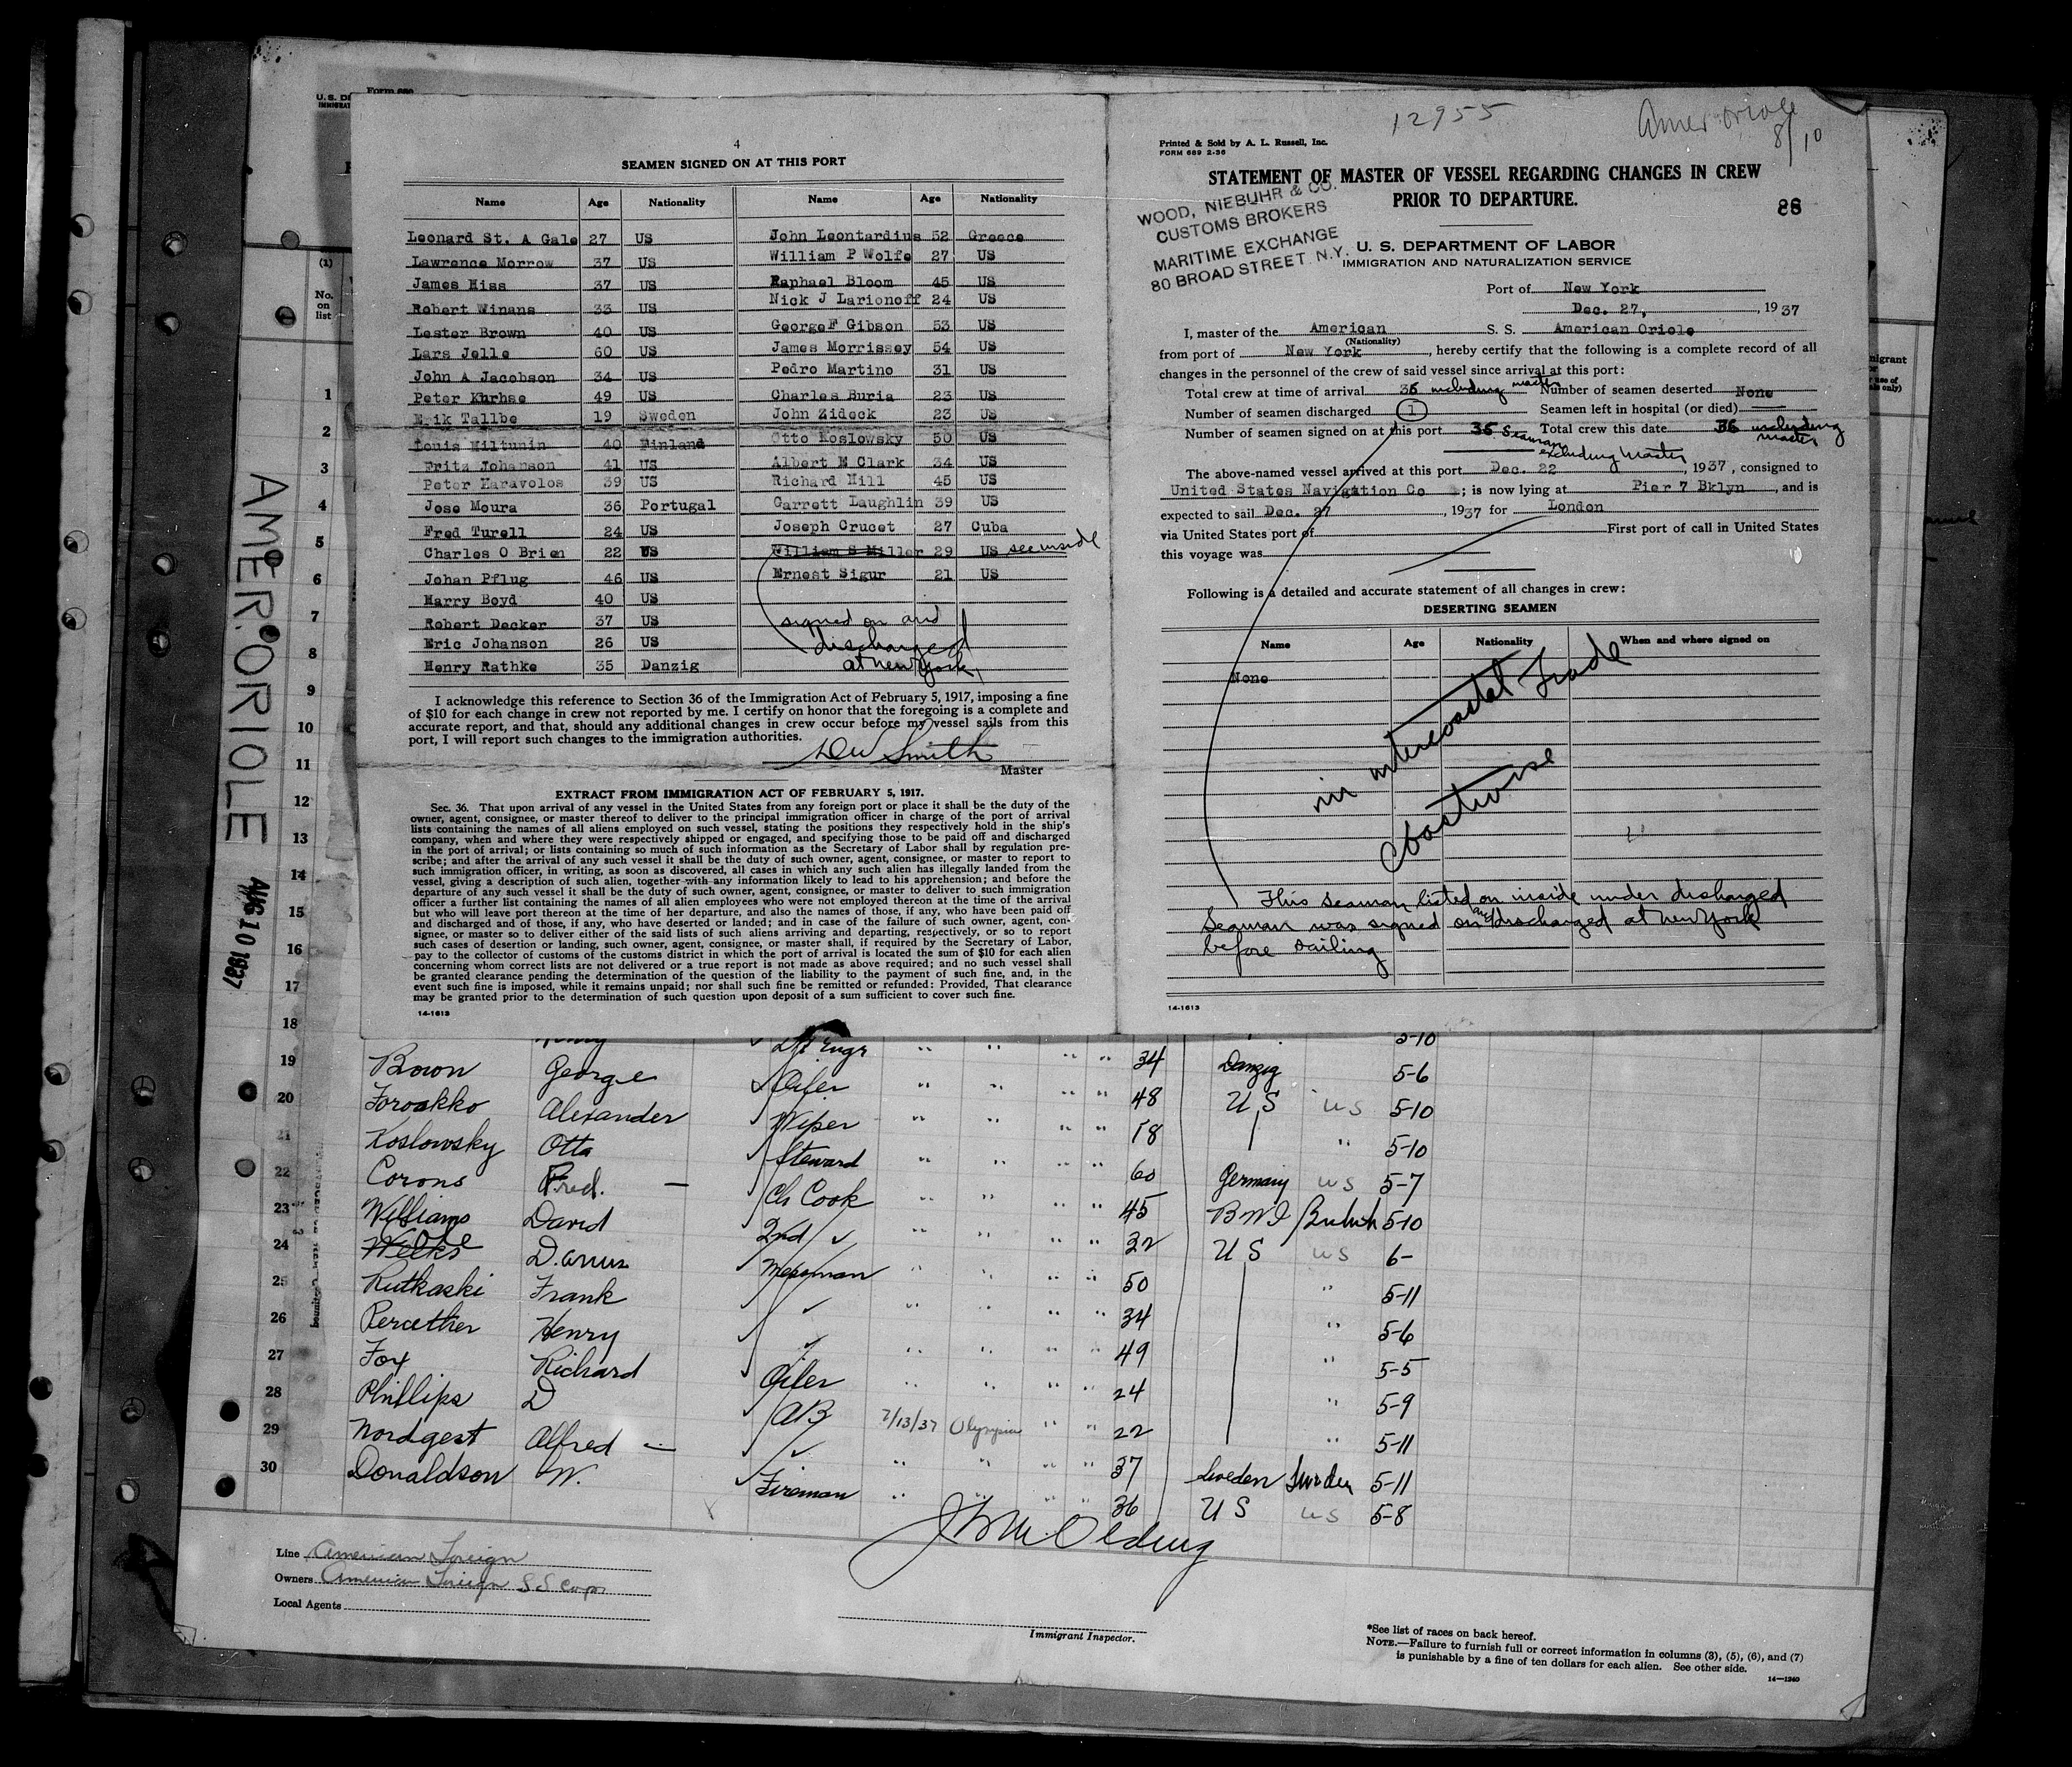 Form 689
U. S. DE
IMMIGRAT
4
SEAMEN SIGNED ON AT THIS PORT
Name Age Nationality Name Age Nationality
Leonard St. A Gale 27 US John Leontardius 52 Greece
Lawrence Morrow 37 US William P Wolfe 27 US
James Hiss 37 US Raphael Bloom 45 US
Robert Winans 33 US Nick J Larionoff 24 US
Lester Brown 40 US George F Gibson 53 US
Lars Jelle 60 US James Morrissey 54 US
John A Jacobson 34 US Pedro Martino 31 US
Peter Kurhse 49 US Charles Buria 23 US
Erik Tallbe 19 Sweden John Zideck 23 US
Louis Miltunin 40 Finland Otto Koslowsky 50 US
Fritz Johanson 41 US Albert E Clark 34 US
Peter Karavolos 39 US Richard Hill 45 US
Jose Moura 36 Portugal Garrett Laughlin 39 US
Fred Turell 24 US Joseph Crucet 27 Cuba
Charles O Brien 22 US William S Miller 29 US see inside
Johan Pflug 46 US Ernest Sigur 21 US
Harry Boyd 40 US
Robert Decker 37 US signed on and
Eric Johanson 26 US discharged
Henry Rathke 35 Danzig at New York
I acknowledge this reference to Section 36 of the Immigration Act of February 5, 1917, imposing a fine
of $10 for each change in crew not reported by me. I certify on honor that the foregoing is a complete and
accurate report, and that, should any additional changes in crew occur before my vessel sails from this
port, I will report such changes to the immigration authorities.
Smith
Master
EXTRACT FROM IMMIGRATION ACT OF FEBRUARY 5, 1917.
Sec. 36. That upon arrival of any vessel in the United States from any foreign port or place it shall be the duty of the
owner, agent, consignee, or master thereof to deliver to the principal immigration officer in charge of the port of arrival
lists containing the names of all aliens employed on such vessel, stating the positions they respectively hold in the ship's
company, when and where they were respectively shipped or engaged, and specifying those to be paid off and discharged
in the port of arrival; or lists containing so much of such information as the Secretary of Labor shall by regulation pre-
scribe; and after the arrival of any such vessel it shall be the duty of such owner, agent, consignee, or master to report to
such immigration officer, in writing, as soon as discovered, all cases in which any such alien has illegally landed from the
vessel, giving a description of such alien, together with any information likely to lead to his apprehension; and before the
departure of any such vessel it shall be the duty of such owner, agent, consignee, or master to deliver to such immigration
officer a further list containing the names of all alien employees who were not employed thereon at the time of the arrival
but who will leave port thereon at the time of her departure, and also the names of those, if any, who have been paid off
and discharged and of those, if any, who have deserted or landed; and in case of the failure of such owner, agent, con-
signee, or master so to deliver either of the said lists of such aliens arriving and departing, respectively, or so to report
such cases of desertion or landing, such owner, agent, consignee, or master shall, if required by the Secretary of Labor,
pay to the collector of customs of the customs district in which the port of arrival is located the sum of $10 for each alien
concerning whom correct lists are not delivered or a true report is not made as above required; and no such vessel shall
be granted clearance pending the determination of the question of the liability to the payment of such fine, and, in the
event such fine is imposed, while it remains unpaid; nor shall such fine be remitted or refunded: Provided, That clearance
may be granted prior to the determination of such question upon deposit of a sum sufficient to cover such fine.
14-1613
12955
Amer oriole
8/10
Printed & Sold by A. L. Russell, Inc.
FORM 689 2-36
STATEMENT OF MASTER OF VESSEL REGARDING CHANGES IN CREW
PRIOR TO DEPARTURE.
WOOD, NIEBUHR & CO.
CUSTOMS BROKERS
MARITIME EXCHANGE
80 BROAD STREET N.Y.
U. S. DEPARTMENT OF LABOR
IMMIGRATION AND NATURALIZATION SERVICE
Port of New York
Dec. 27, 1937
I, master of the American S. S. American Oriole
(Nationality)
from port of New York, hereby certify that the following is a complete record of all
changes in the personnel of the crew of said vessel since arrival at this port:
Total crew at time of arrival 36 including master Number of seamen deserted None
Number of seamen discharged 1 Seamen left in hospital (or died)
Number of seamen signed on at this port 35 Seaman excluding Master Total crew this date 36 including master
The above-named vessel arrived at this port Dec. 22, 1937, consigned to
United States Navigation Co; is now lying at Pier 7 Bklyn, and is
expected to sail Dec. 27, 1937 for London
via United States port of First port of call in United States
this voyage was
Following is a detailed and accurate statement of all changes in crew:
DESERTING SEAMEN
Name Age Nationality When and where signed on
None
in intercoastal trade
Coastwise
This seaman listed on inside under discharged
Seaman was signed on and discharged at New York
before sailing
14-1613
AMER. ORIOLE
AUG 10 1937
(1)
No. on list
1
2
3
4
5
6
7
8
9
10
11
12
13
14
15
16
17
18
5-10
19 Brown George Oiler 34 Danzig 5-6
20 Alexander Wiper 48 U S US 5-10
21 Koslowsky Otto Steward 18 5-10
22 Corons Fred. Ch Cook 60 Germany US 5-7
23 Williams David 2nd 45 B W I British 5-10
24 Messman 32 U S US 6-
25 Rutkaski Frank 50 5-11
26 Percether Henry 34 5-6
27 Fox Richard Oiler 49 5-5
28 Phillips D AB 7/13/37 Olympia 24 5-9
29 Nordgest Alfred 22 5-11
30 Donaldson W. Fireman 37 Sweden Sweden 5-11
36 U S US 5-8
Line American Foreign
Owners American Foreign S S Corp
Local Agents
Immigrant Inspector.
*See list of races on back hereof.
NOTE.—Failure to furnish full or correct information in columns (3), (5), (6), and (7)
is punishable by a fine of ten dollars for each alien. See other side.
14—1240